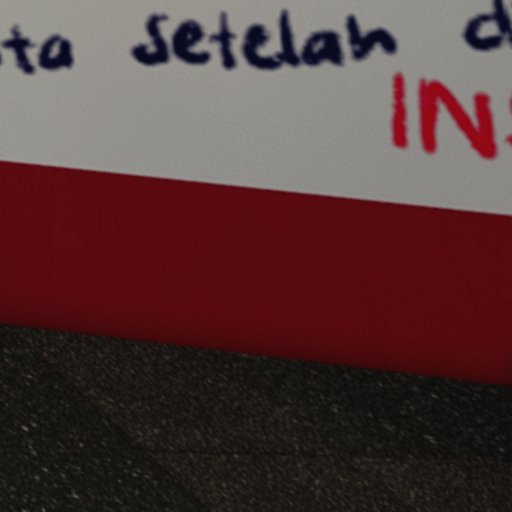 ta setelah d
INS